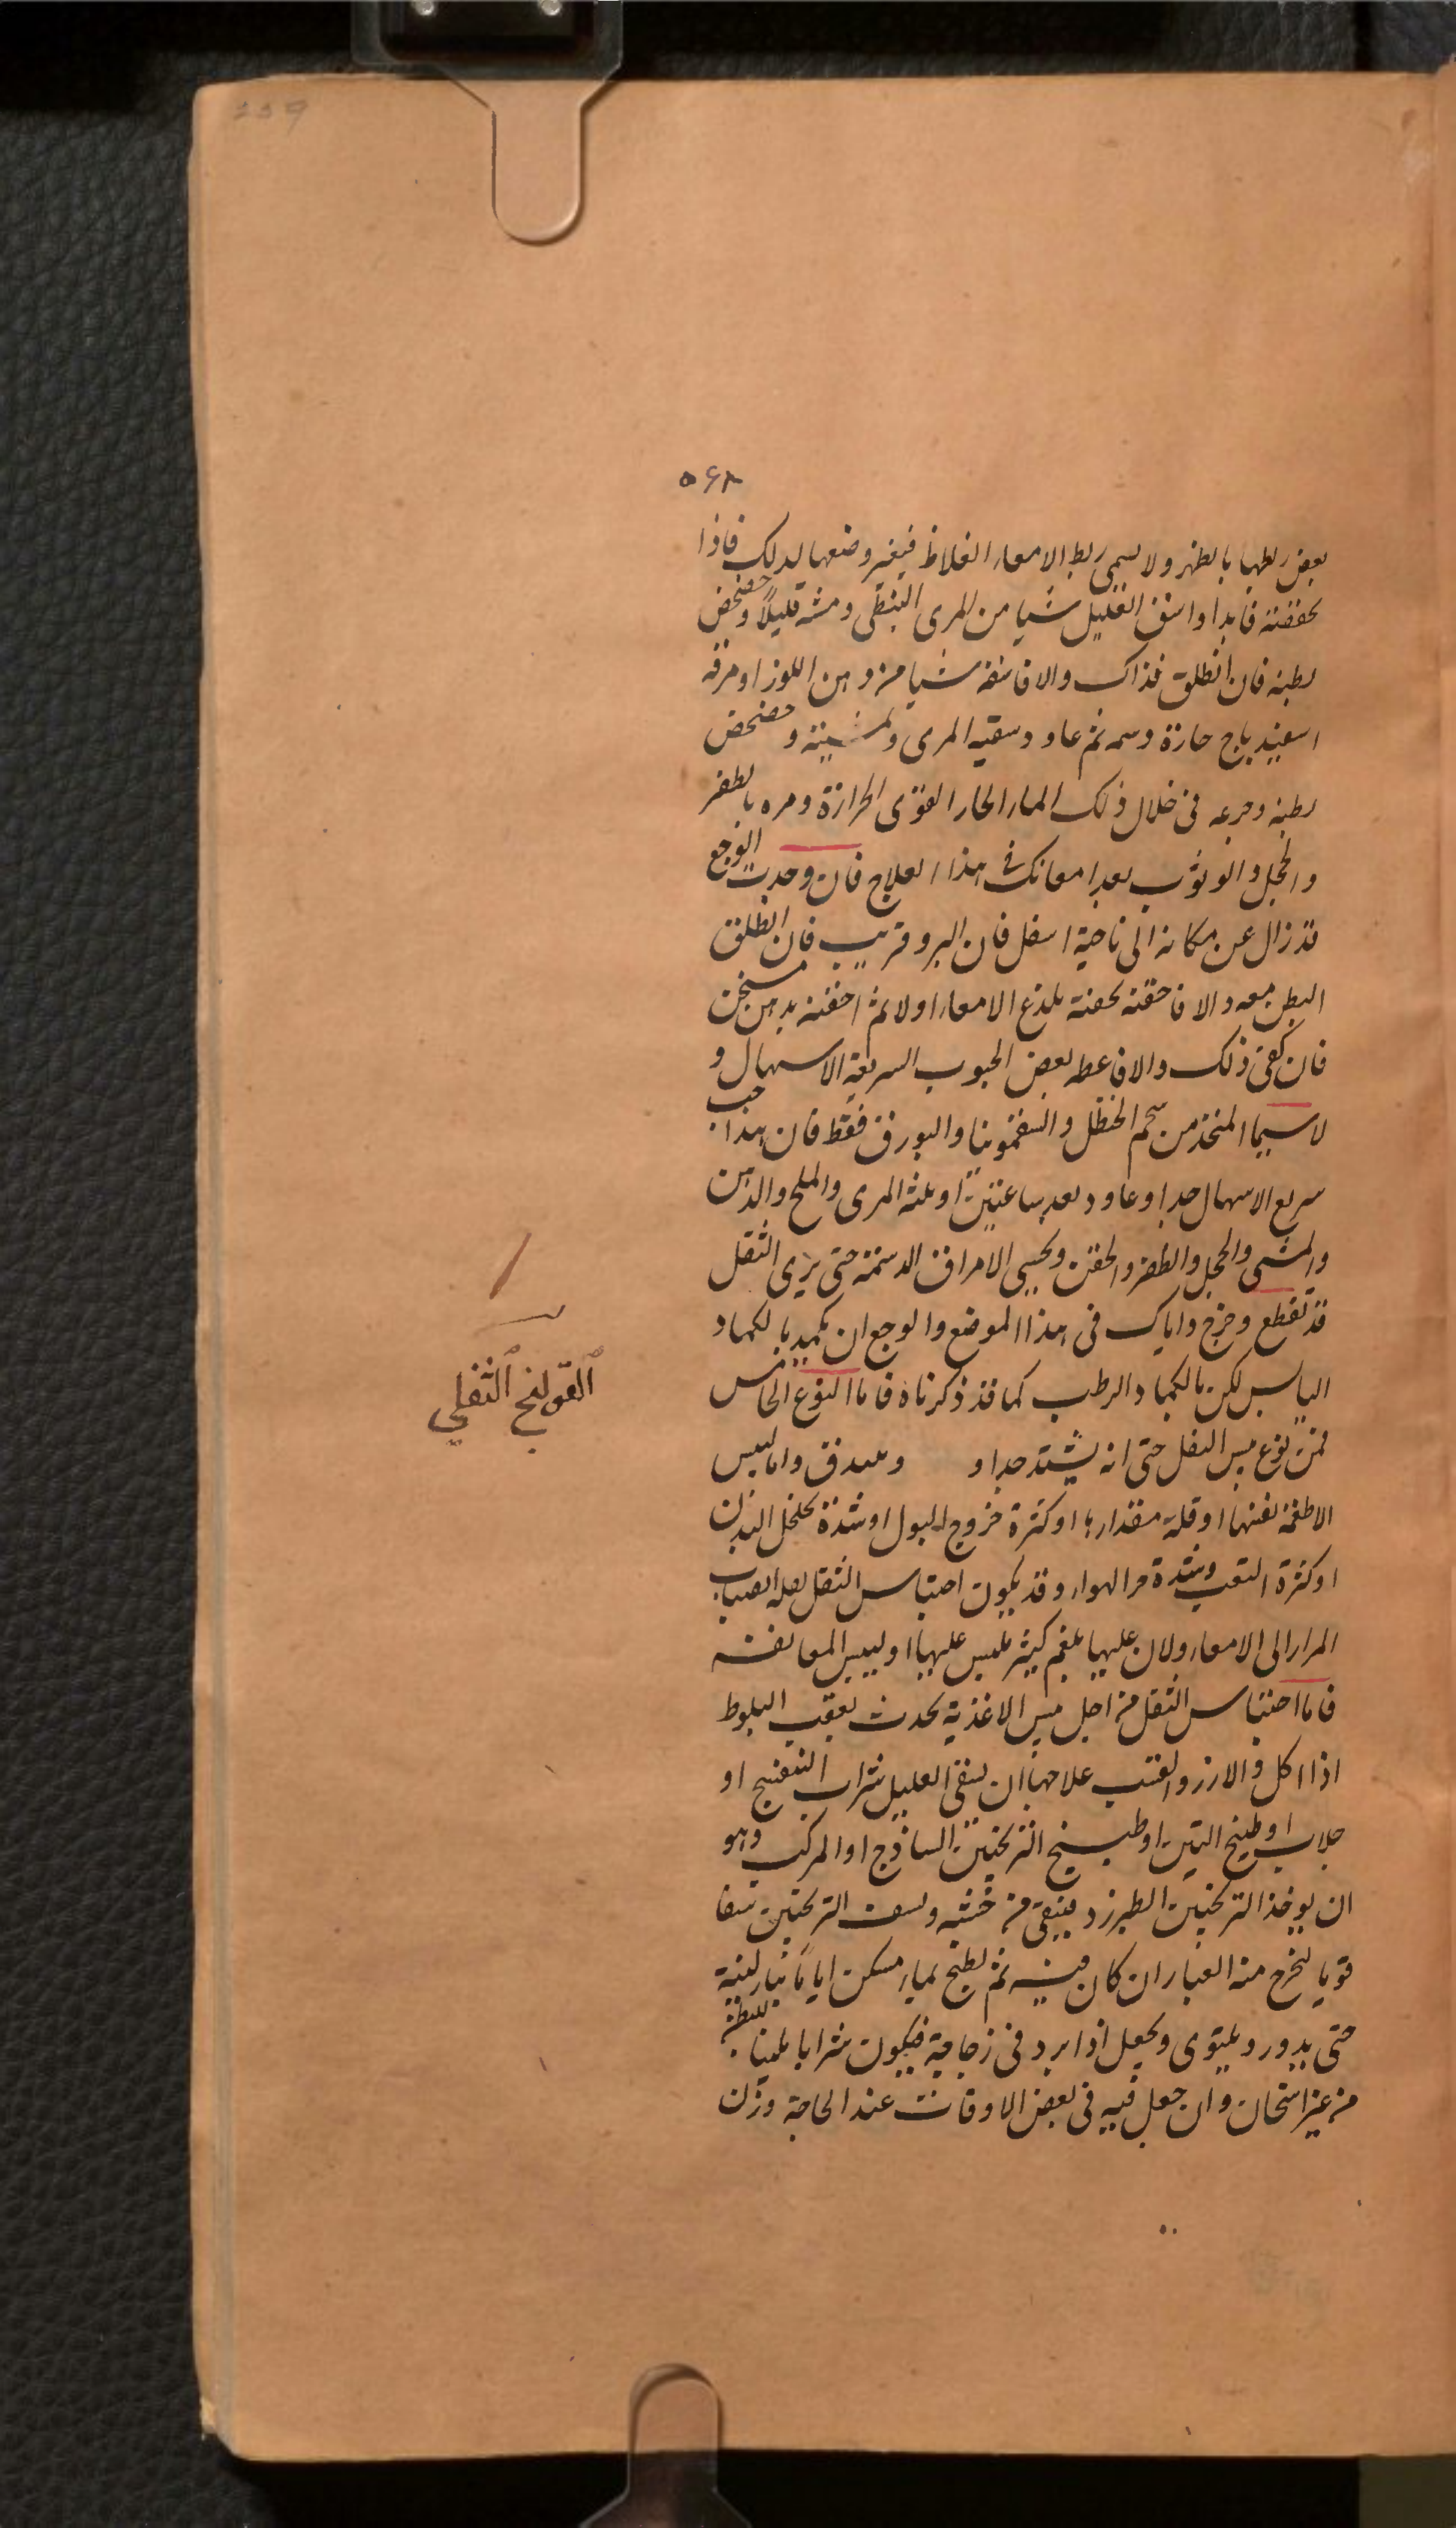 ٥٤٨
بعض ربطها بالظهر ولا سيمى ربط الامعاء الغلاظ فيغير وضعها لذلك فاذا
تحققته فابدا واسق العليل شيا من المرى النبطى ومشه قليلا وخضخض
بطنه فان انطلق فذاك والا فاسقه شيا من دهن اللوز او مرقه
اسفيدباج حارة دسمه ثم عاود سقيه المرى وتمشيته وخضخض
بطنه وجرعه فى خلال ذلك الماء الحار القوى الحرارة ومره بالطفر
والحجل والوثوب بعد امعانك فى هذا العلاج فان وجدت الوجع
قد زال عن مكانه الى ناحية اسفل فان البرو قريب فان انطلق
البطن معه والا فاحقنه بحقنة تلذع الامعاء اولا ثم احقنه بدهن مسخن
فان كفى ذلك والا فاعطه بعض الحبوب السريعة الاسهال و
لاسيما المتخذ من شحم الحنظل والسقمونيا والبورق فقط فان هذا حب
سريع الاسهال جدا وعاود بعد ساعتين او ثلثه المرى والملح والدهن
والمشى والحجل والطفر والحقن وتحسى الامراق الدسمة حتى يرى الثفل
قد تقطع وخرج واياك فى هذا الموضع والوجع ان تكمد بالكماد
اليابس لكن بالكماد الرطب كما قد ذكرناه فاما النوع الخامس
فمن نوع يبس الثفل حتى انه يشتد جدا و ويبندق واما ليبس
الاطعمة نفسها او قلة مقدارها او كثرة خروج البول او شدة تخلخل البدن
او كثرة التعب وشدة حر الهواء وقد يكون احتباس الثفل لعلة انصباب
المرار الى الامعاء ولان عليها بلغم كثير ملبس عليها او ليبس المعا نفسه
فاما احتباس الثفل من اجل يبس الاغذية يحدث بعقب البلوط
اذا اكل والارز والقنب علاجها ان يسقى العليل شراب البنفسج او
جلاب او طبيخ التين او طبيخ الترنجبين الساذج او المركب وهو
ان يوخذ الترنجبين الطبرزد فينقى من خشبه ويسف الترنجبين سفا
قويا ليخرج منه الغبار ان كان فيه ثم يطبخ بماء ممكن اياما بنار لينة
حتى يدور ويلتوى ويجعل اذا برد فى زجاجة فيكون شرابا ملينا للبطن
من غير اسخان وان جعل فيه فى بعض الاوقات عند الحاجة وزن
القولنج الثفلي